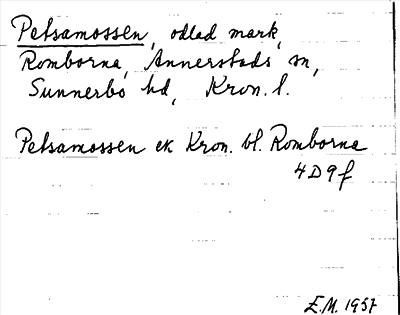 Petsamossen, odlad mark,
Romborna, Annerstads sn,
Sunnerbo hd, Kron. l.
Petsamossen ek Kron. bl. Romborna
4D9f
E.M. 1957